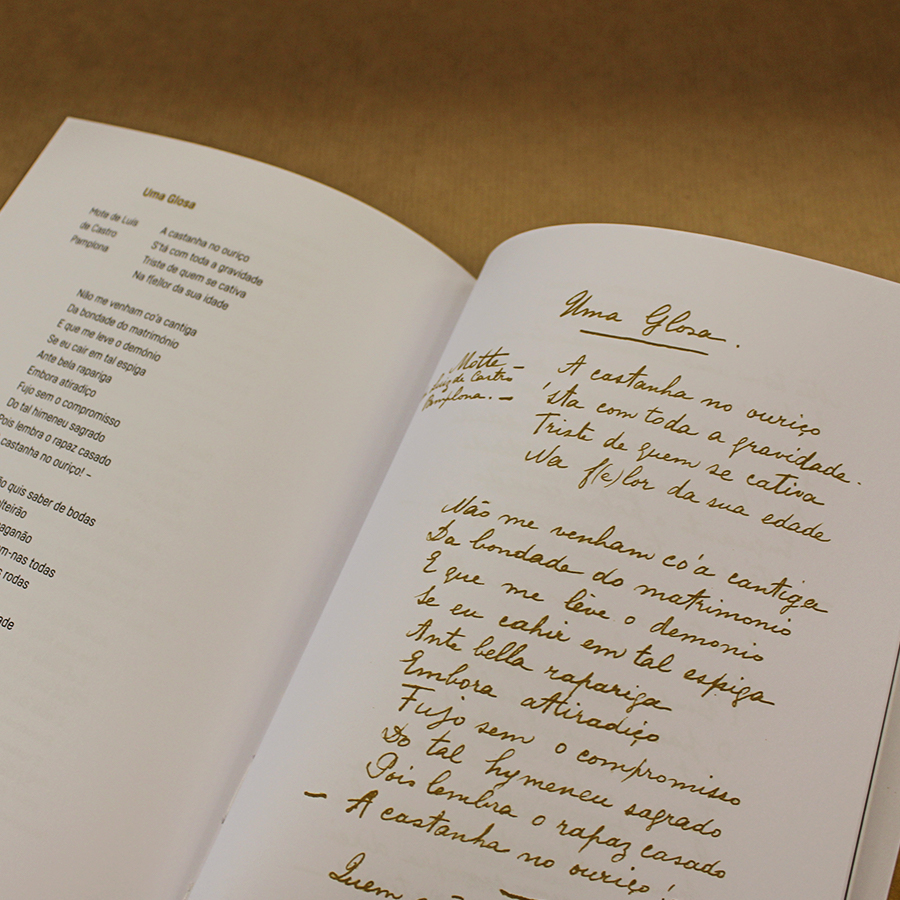 Uma Glosa
Mote de Luis
de Castro
Pamplona
A castanha no ouriço
S'tá com toda a gravidade
Triste de quem se cativa
Na f(e)lor da sua idade
Não me venham co'a cantiga
Da bondade do matrimónio
E que me leve o demónio
Se eu cair em tal espiga
Ante bela rapariga
Embora atiradiço
Fujo sem o compromisso
Do tal himeneu sagrado
Pois lembra o rapaz casado
castanha no ouriço! –
quis saber de bodas
todas
rodas
Uma Glosa.
Motte –
Luiz de Castro
Pamplona. –
A castanha no ouriço
'Sta com toda a gravidade.
Triste de quem se cativa
Na f(e)lor da sua edade
Não me venham co'a cantiga
Da bondade do matrimonio
E que me lève o demonio
Se eu cahir em tal espiga
Ante bella rapariga
Embora attiradiço
Fujo sem o compromisso
Do tal hymeneu sagrado
Pois lembra o rapaz casado
– A castanha no ouriço!
Quem